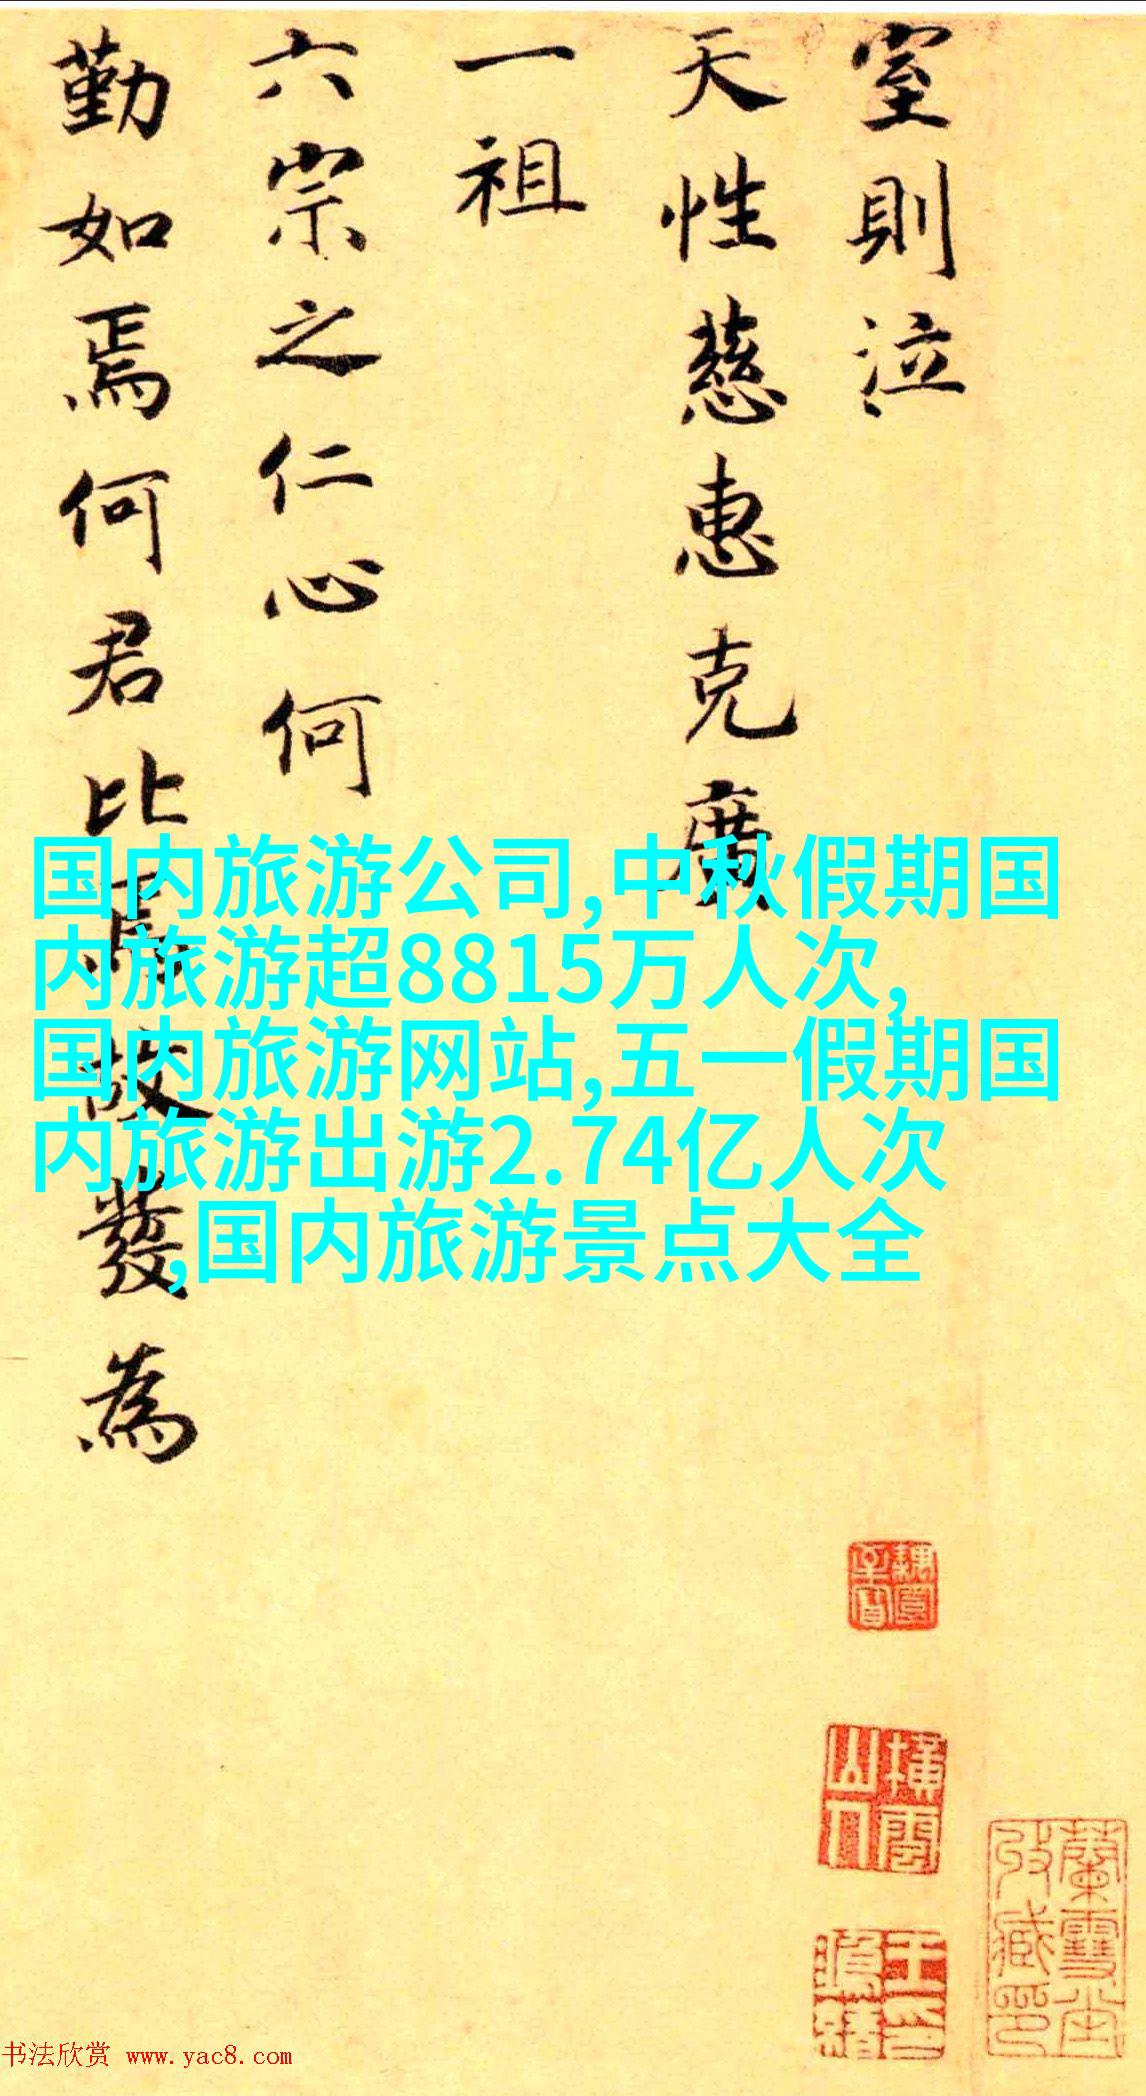 室則泣
天性慈惠克廣
一祖
六宗之仁心何
勤如焉何君比焉故發為
国内旅游公司,中秋假期国
内旅游超8815万人次,
国内旅游网站,五一假期国
内旅游出游2.74亿人次
,国内旅游景点大全
橫雲
山人
蘭雪堂
收藏印
书法欣赏 www.yac8.com